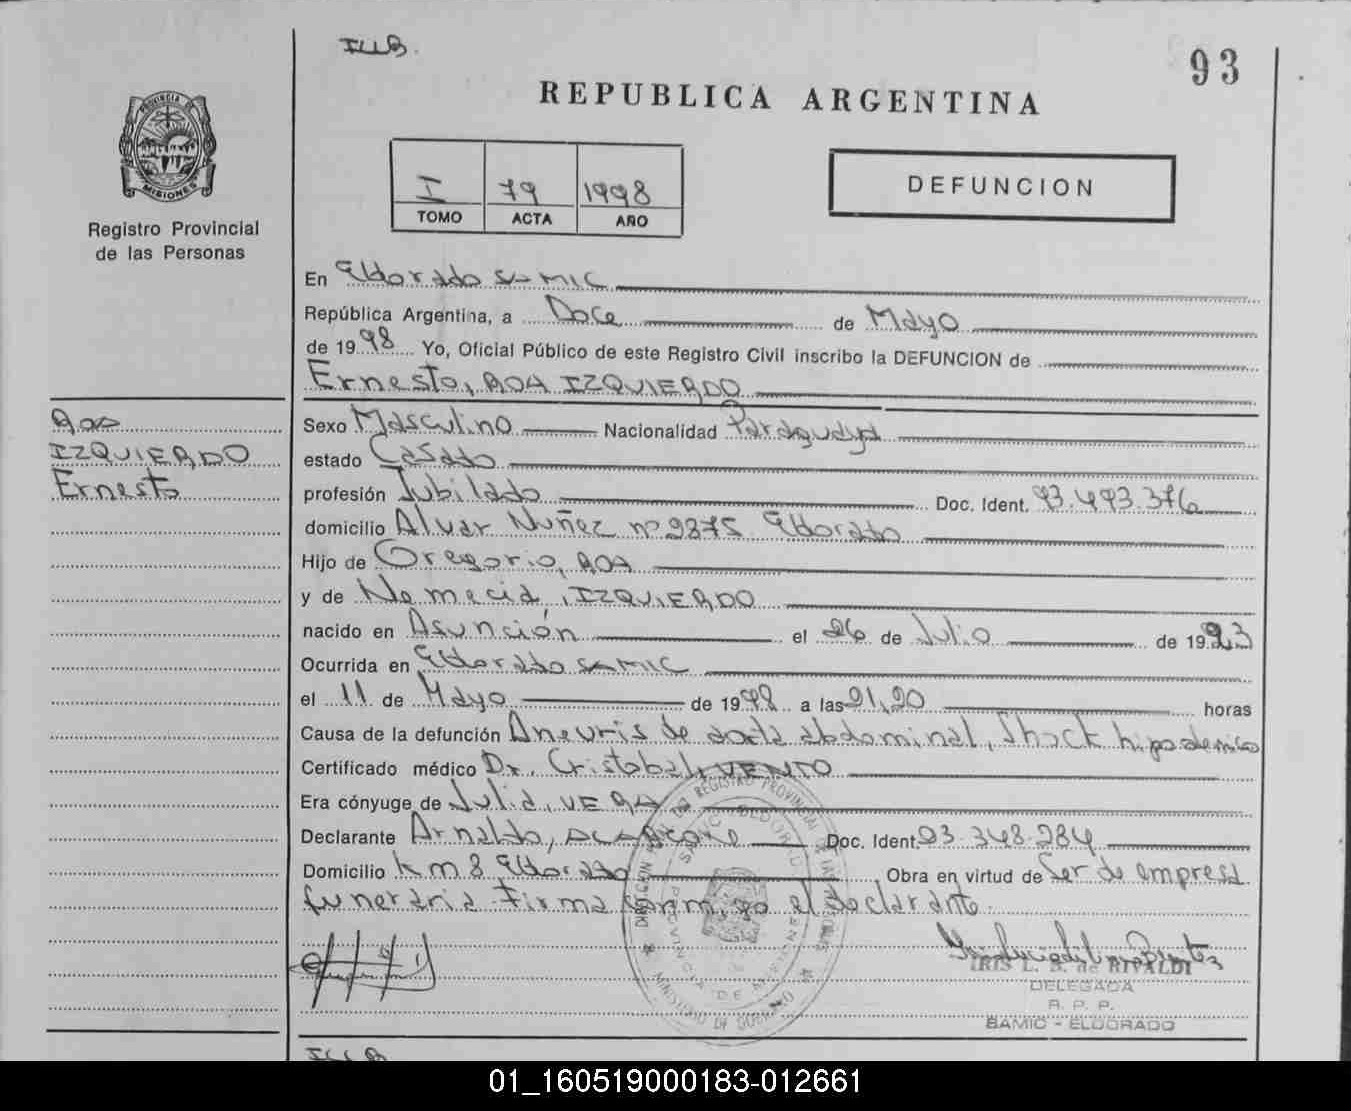 93
REPUBLICA ARGENTINA
PROVINCIA DE MISIONES
Registro Provincial
de las Personas
I 79 1998
TOMO ACTA AÑO
DEFUNCION
En Eldorado SAMIC
República Argentina, a Doce de Mayo
de 1998 Yo, Oficial Público de este Registro Civil inscribo la DEFUNCION de
Ernesto, ROA IZQUIERDO
Roa
IZQUIERDO
Ernesto
Sexo Masculino Nacionalidad Paraguaya
estado Casado
profesión Jubilado Doc. Ident. 93.493.376
domicilio Alvar Nuñez nº 2375 Eldorado
Hijo de Gregorio, ROA
y de Nemecia, IZQUIERDO
nacido en Asunción el 26 de Julio de 1923
Ocurrida en Eldorado SAMIC
el 11 de Mayo de 1998 a las 21,20 horas
Causa de la defunción Aneuris de aorta abdominal, Shock
Certificado médico Dr. Cristobal, VENTO
Era cónyuge de Julia, VERA
Declarante Arnaldo, Doc. Ident. 23.348.284
Domicilio Km 8 Eldorado Obra en virtud de Ser de empresa
funeraria Firma conmigo el declarante.
IRIS L. B. de RIVALDI
DELEGADA
R. P. P.
SAMIC - ELDORADO
01_160519000183-012661